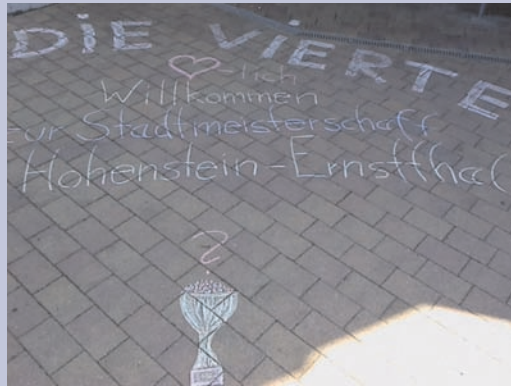 DIE VIERTE
♡-lich
Willkommen
zur Stadtmeisterschaft
Hohenstein-Ernstthal
?